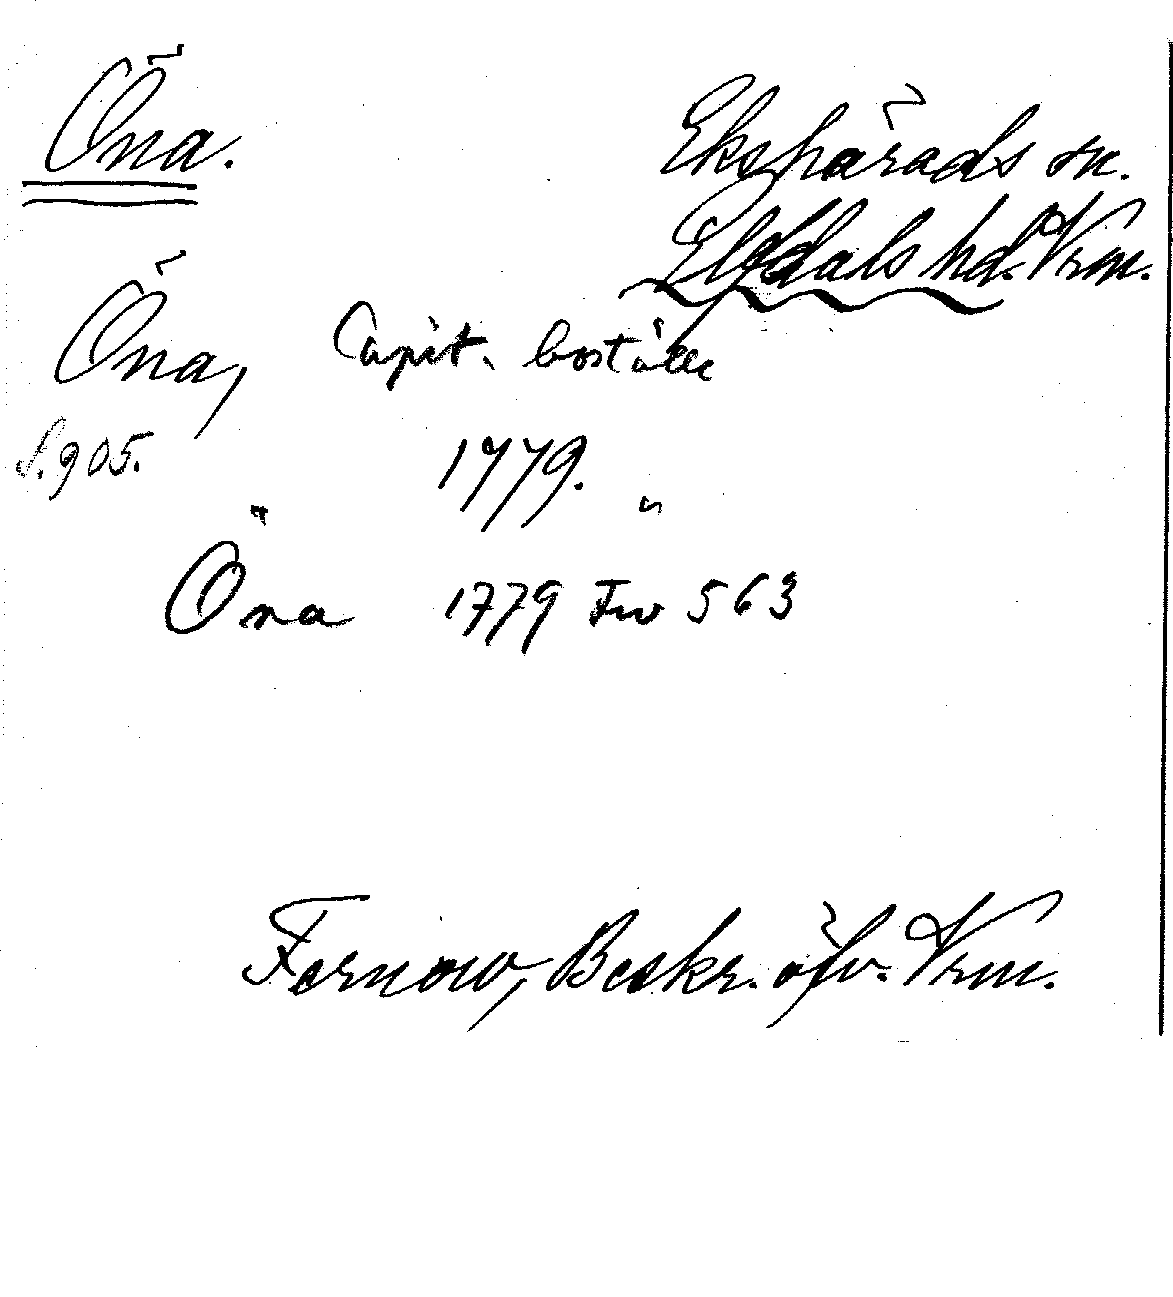 Öna.
Ekshärads sn.
Elfdals hd. Vrm.
Öna, Capit. boställe
S. 905.
1779. "
Öna 1779 Fw 563
Fernow, Beskr. öfv. Vrm.